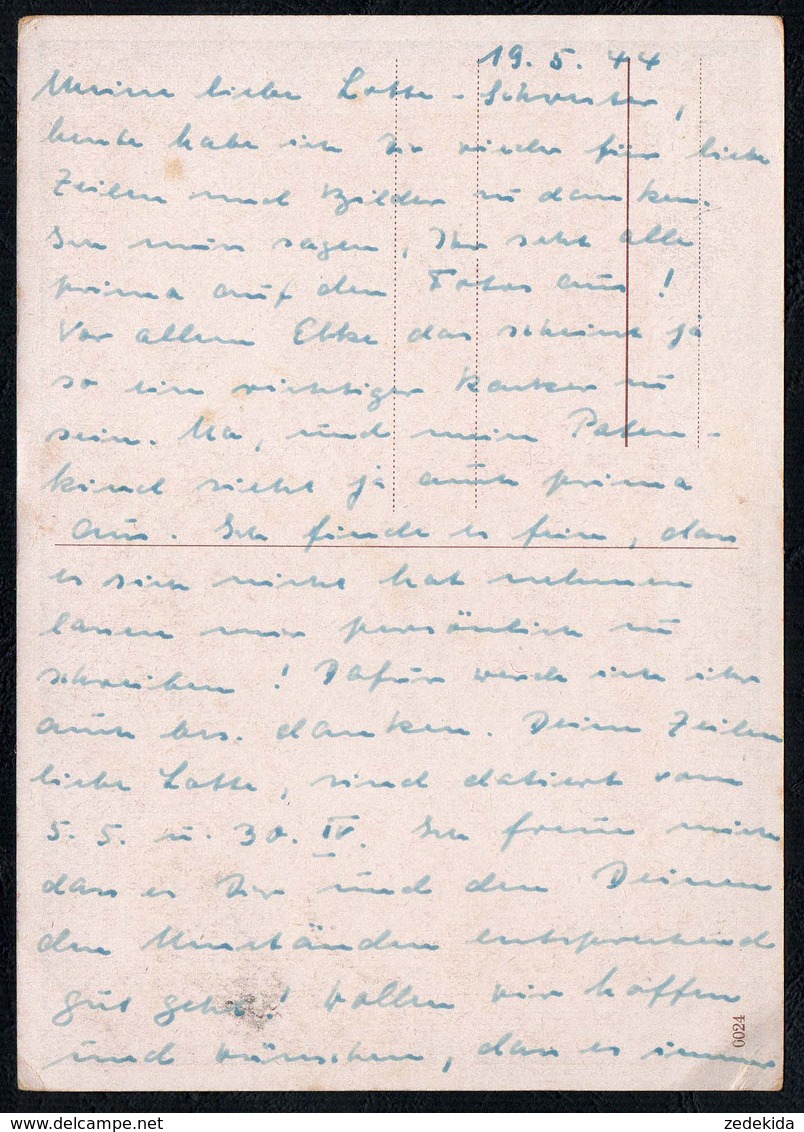 19. 5. 44
Meine liebe Lotte-Schwester,
heute habe ich Dir wieder für liebe
Zeilen und Bilder zu danken.
Ich muss sagen, Ihr seht alle
prima auf den Fotos aus!
Vor allem Ebke das scheint ja
so ein richtiger zu
sein. Na, und mein Paten-
kind sieht ja auch prima
aus. Ich finde es fein, dass
es sich nicht hat nehmen
lassen mir persönlich zu
schreiben! Dafür werde ich ihr
auch bes. danken. Deine Zeilen
liebe Lotte, sind datiert vom
5. 5. u. 30. IV. Ich freue mich
dass es Dir und den Deinen
den Umständen entsprechend
gut geht! Wollen wir hoffen
und wünschen, dass es immer
0024
zedekida